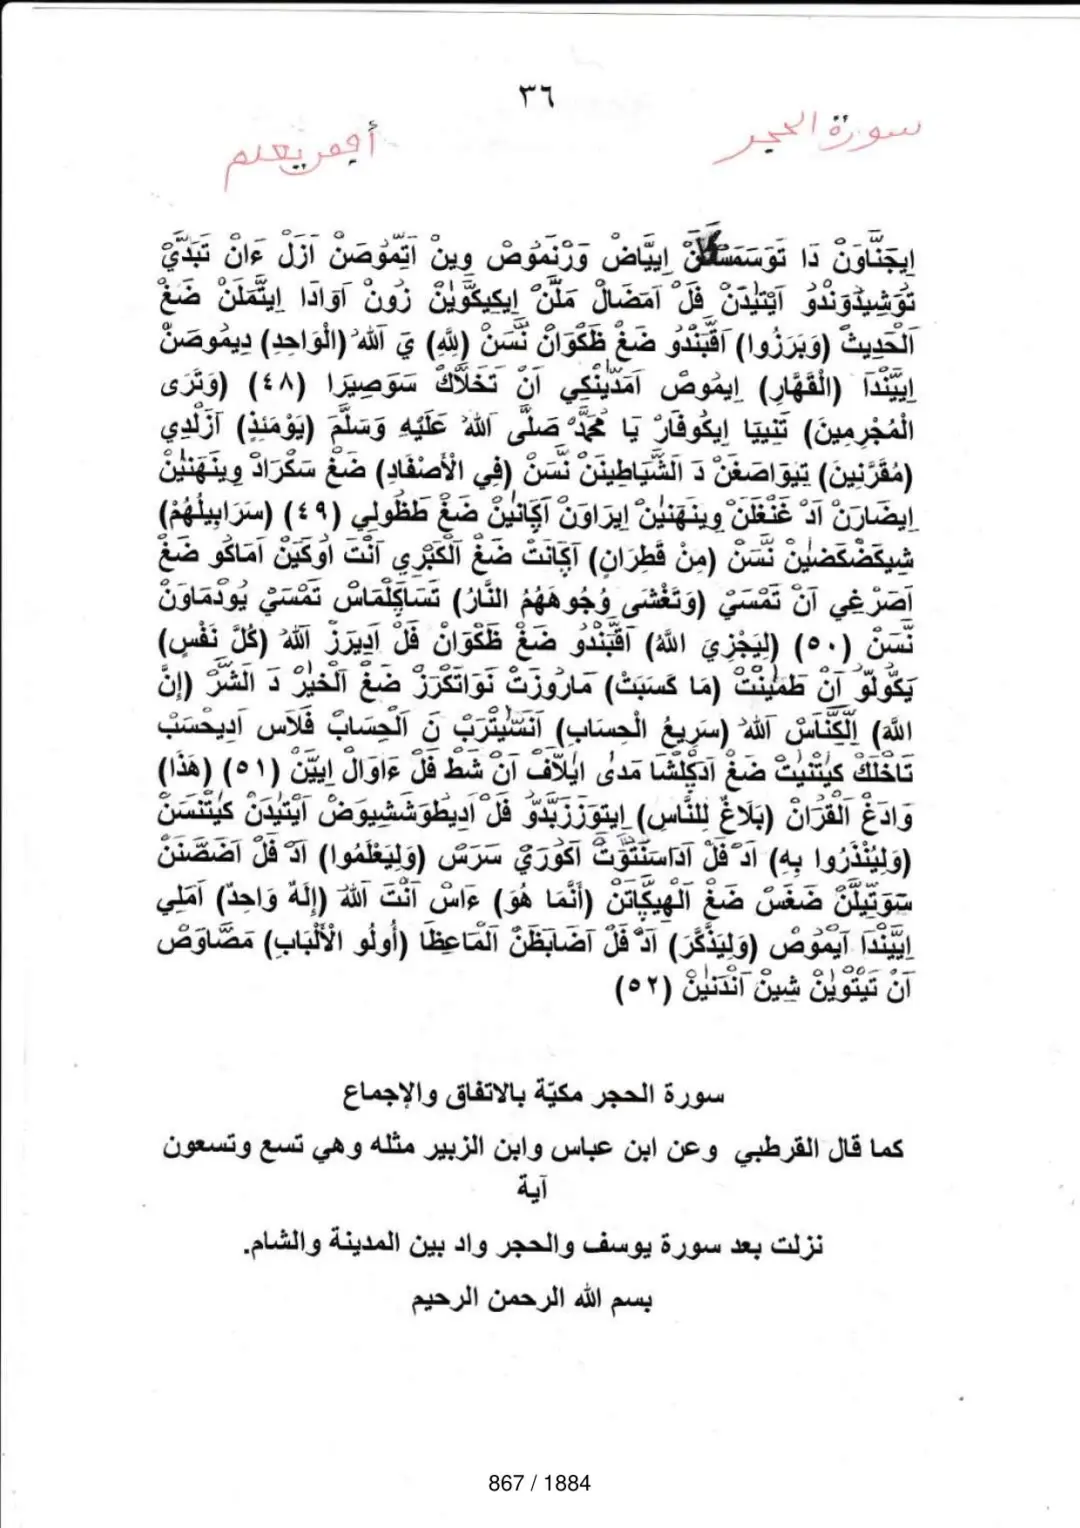 ٣٦
سورة الحجر
إِيجَنَّاوَنْ دَا تَوَسَمَسْكَلَنْ إِيبَّاضْ وَرْنَمُوصْ وِينْ اَتِّمُوصَنْ اَزَلْ ءَانْ تَبَدَّيْ
تُوشِيذَوَنْدُو اَيْتِيدَنْ فَلْ اَمَضَالْ مَلَّنْ إِيكِيكَّوِيَنْ زُونْ اَوَادَا اِيتَّمَلَنْ ضَغْ
اَلْحَدِيثْ (وَبَرَزُوا) اَقَّبَنْدُو ضَغْ ظَكْوَانْ نَّسَنْ (لِلَّهِ) يَ اللهُ (الْوَاحِدِ) دِيمُوصَنْ
اِييَّنْدَا (الْقَهَّارِ) اِيمُوصْ اَمَدِّينْكِي اَنْ تَخَلَّاكْ سَوَصِيرَا (٤٨) (وَتَرَى
الْمُجْرِمِينَ) تَنِييَا اِيكُوفَارْ يَا مُحَمَّدْ صَلَّى اللهُ عَلَيْهِ وَسَلَّمَ (يَوْمَئِذٍ) اَزَلْدِي
(مُقَرَّنِينَ) تِيوَاصَغَنْ دَ اَلشَّيَاطِينَنْ نَّسَنْ (فِي الْأَصْفَادِ) ضَغْ سَكْرَادْ وِينَهَنَيْنْ
اِيضَارَنْ اَدْ غَنْغَلَنْ وِينَهَنَيْنْ اِيرَاوَنْ اَكَّانَيْنْ ضَغْ طَظُولِي (٤٩) (سَرَابِيلُهُمْ)
شِيكَضْكَضِينْ نَّسَنْ (مِنْ قَطِرَانٍ) اَكَّانَتْ ضَغْ اَلْكَبْرِي اَنْتَ اَوكَيْنْ اَمَاكُو ضَغْ
اَصَرْغِي اَنْ تَمْسَيْ (وَتَغْشَى وُجُوهَهُمُ النَّارُ) تَسَاكِّلْمَاسْ تَمْسَيْ يُودْمَاوَنْ
نَّسَنْ (٥٠) (لِيَجْزِيَ اللَّهُ) اَقَّبَنْدُو ضَغْ ظَكْوَانْ فَلْ اَدِيرَزْ اللهُ (كُلَّ نَفْسٍ)
يَكُولُّو اَنْ طَمَيْنَتْ (مَا كَسَبَتْ) مَارُوزَتْ نَوَاتَكْرَزْ ضَغْ اَلْخَيْرْ دَ اَلشَّرْ (إِنَّ
اللَّهَ) اِلَكَّنَاسْ اللهُ (سَرِيعُ الْحِسَابِ) اَنَسَّيْتْرَبْ نَ اَلْحِسَابْ فَلَاس اَدِيحْسَبْ
تَاخْلَكْ كَيْتْنَيْتْ ضَغْ اَدَكِّلْشَا مَدَى اَيْلَّافْ اَنْ شَطْ فَلْ ءَاوَالْ اِييَّنْ (٥١) (هَذَا)
وَادَغْ اَلْقُرَانْ (بَلَاغٌ لِلنَّاسِ) اِيتِوَزْزَبَّدُو فَلْ اَدِيطَوَشَشِيوَضْ اَيْتِيدَنْ كَيْتْنَسَنْ
(وَلِيُنْذَرُوا بِهِ) اَدْ فَلْ اَدَاسَنْتَوَّتْ اَكُورَيْ سَرَسْ (وَلِيَعْلَمُوا) اَدْ فَلْ اَضَصَّنَنْ
سَوَتِّيلَّنْ ضَغَسْ ضَغْ اَلْهِيكَّاتَنْ (أَنَّمَا هُوَ) ءَاسْ اَنْتَ اللهُ (إِلَهٌ وَاحِدٌ) اَمَلِي
اِييَّنْدَا اَيْمُوصْ (وَلِيَذَّكَّرَ) اَدْ فَلْ اَضَابَظَنْ اَلْمَاعِظَا (أُولُو الْأَلْبَابِ) مَصَّاوَصْ
اَنْ تَيْتِّوِيَنْ شِينْ اَنْدَنَيْنْ (٥٢)
سورة الحجر مكيّة بالاتفاق والإجماع
كما قال القرطبي وعن ابن عباس وابن الزبير مثله وهي تسع وتسعون
آية
نزلت بعد سورة يوسف والحجر واد بين المدينة والشام.
بسم الله الرحمن الرحيم
867 / 1884